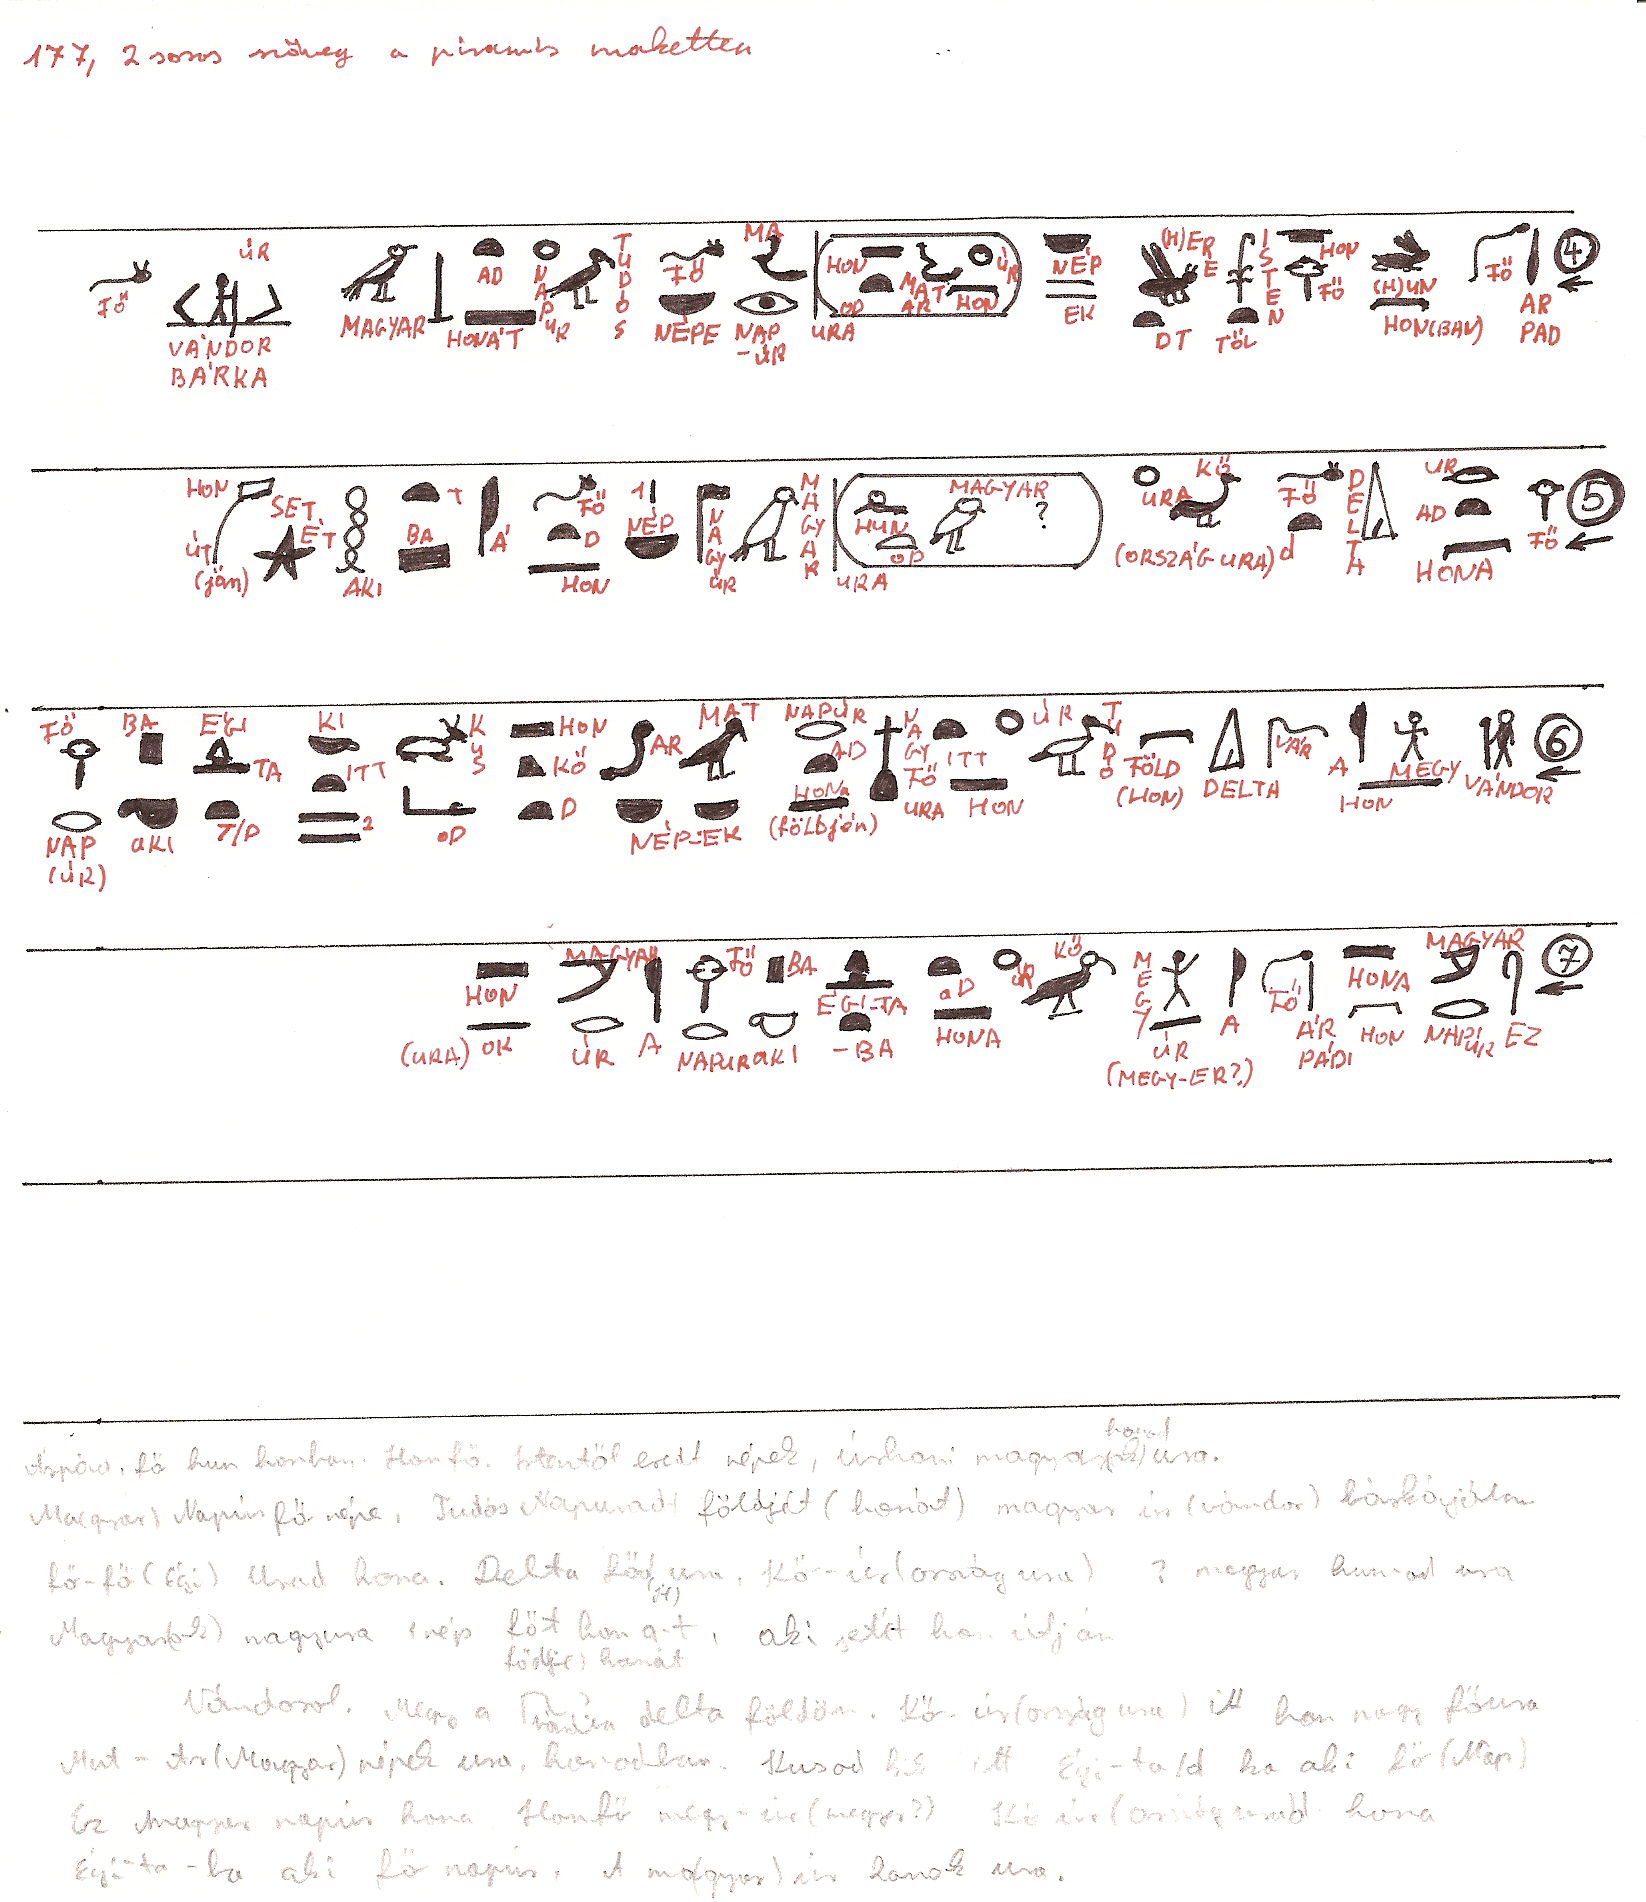 177, 2 soros szöveg a piramis maketten
4 AR PAD FŐ (H)UN HON(BAN) HON FŐ ISTEN TŐL (H)ERE E DT NÉP EK ÚR HON MAT AR HON OD URA MA NAP -ÚR FŐ NÉPE TUDÓS NAPÚR AD HONÁT MAGYAR ÚR VÁNDOR BÁRKA FŐ
5 FŐ UR AD HONA DELTA FŐ d KŐ URA (ORSZÁG URA) MAGYAR ? HUN OD URA MAGYAR NAGY ÚR 1 NÉP FŐ D HON Á T BA AKI SET ÉT HON ÚT (ján)
6 VÁNDOR MEGY HON A VÁR DELTA FÖLD (HON) TUDÓ ÚR ITT HON NAGY FŐ URA NAPÚR AD HONa (földjén) MAT AR NÉP-EK HON KŐ D KUS OD KI ITT 2 ÉGI TA T/D BA aKI FŐ NAP (ÚR)
7 EZ MAGYAR NAPÚR HONA HON FŐ ÁR PÁDI A MEGY ÚR (MEGY-ER?) KŐ ÚR aD HONA ÉGI-TA -BA BA aKI FŐ NAPUR A MAGYAR ÚR HON OK (URA)
Árpád, fő hun honban. Honfő. Istentől eredt népek, úrhoni magyar honod ura.
Ma(gyar) Napúr fő népe, Tudós Napurad földjét (honát) magyar úr (vándor) bárkájában
fő-fő (Égi) Urad hona. Delta föd ura, Kő-úr (ország ura) ? magyar hun-od ura
Magyar(ok) nagyura 1 nép föt hon a-t, aki setét hon útján
föd(je) honát
Vándorol. Megy a delta földön. Kő-úr (ország ura) itt hon nagy főura
Mat-Ar (Magyar) népek ura, honodban. Kusod ki itt Égi-ta/d ba aki fő (Nap)
Ez magyar napúr hona Honfő megy-úr (megyer?) Kő úr (ország urad hona
Égi-ta-ba aki fő napúr. A ma(gyar) úr honok ura.